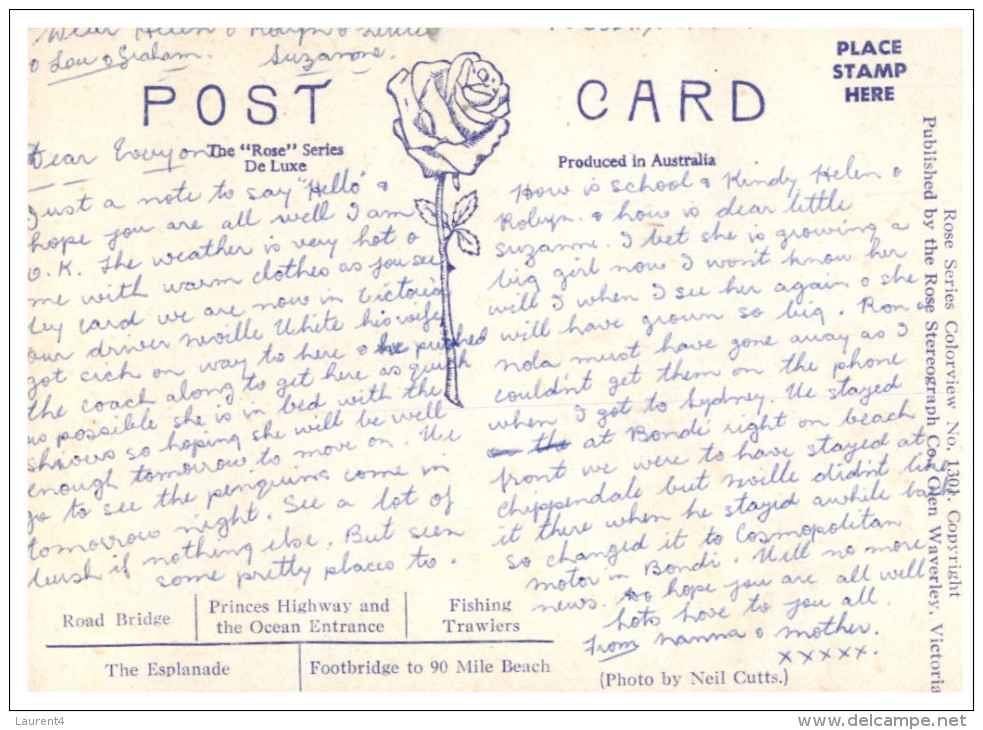 Dear Helen & Robyn &
& Lou & Graham. Suzanne.
PLACE
STAMP
HERE
POST CARD
The "Rose" Series
De Luxe
Produced in Australia
Dear Everyone
Just a note to say "Hello" &
hope you are all well I am
O.K. The weather is very hot &
me with warm clothes as you see
by card we are now in Victoria
our driver neville White his wife
got sick on way to here & he pushed
the coach along to get here as quick
as possible she is in bed with the
shivers so hoping she will be well
enough tomorrow to move on. We
go to see the penguins come in
tomorrow night. See a lot of
bush if nothing else. But seen
some pretty places to.
How is school & Kindy Helen &
Robyn. & how is dear little
suzanne. I bet she is growing a
big girl now I won't know her
will I when I see her again & she
will have grown so big. Ron &
nola must have gone away as I
couldn't get them on the phone
when I got to Sydney. We stayed
at Bondi right on beach
front we were to have stayed at
Chippendale but neville didn't like
it there when he stayed awhile back
so changed it to Cosmopolitan
motor in Bondi. Well no more
news. so hope you are all well
lots love to you all.
From nanna & mother.
xxxxx.
Road Bridge
Princes Highway and
the Ocean Entrance
Fishing
Trawlers
The Esplanade
Footbridge to 90 Mile Beach
(Photo by Neil Cutts.)
Rose Series Colorview No. 1301. Copyright
Published by the Rose Stereograph Co., Glen Waverley, Victoria
Laurent4
delcampe.net